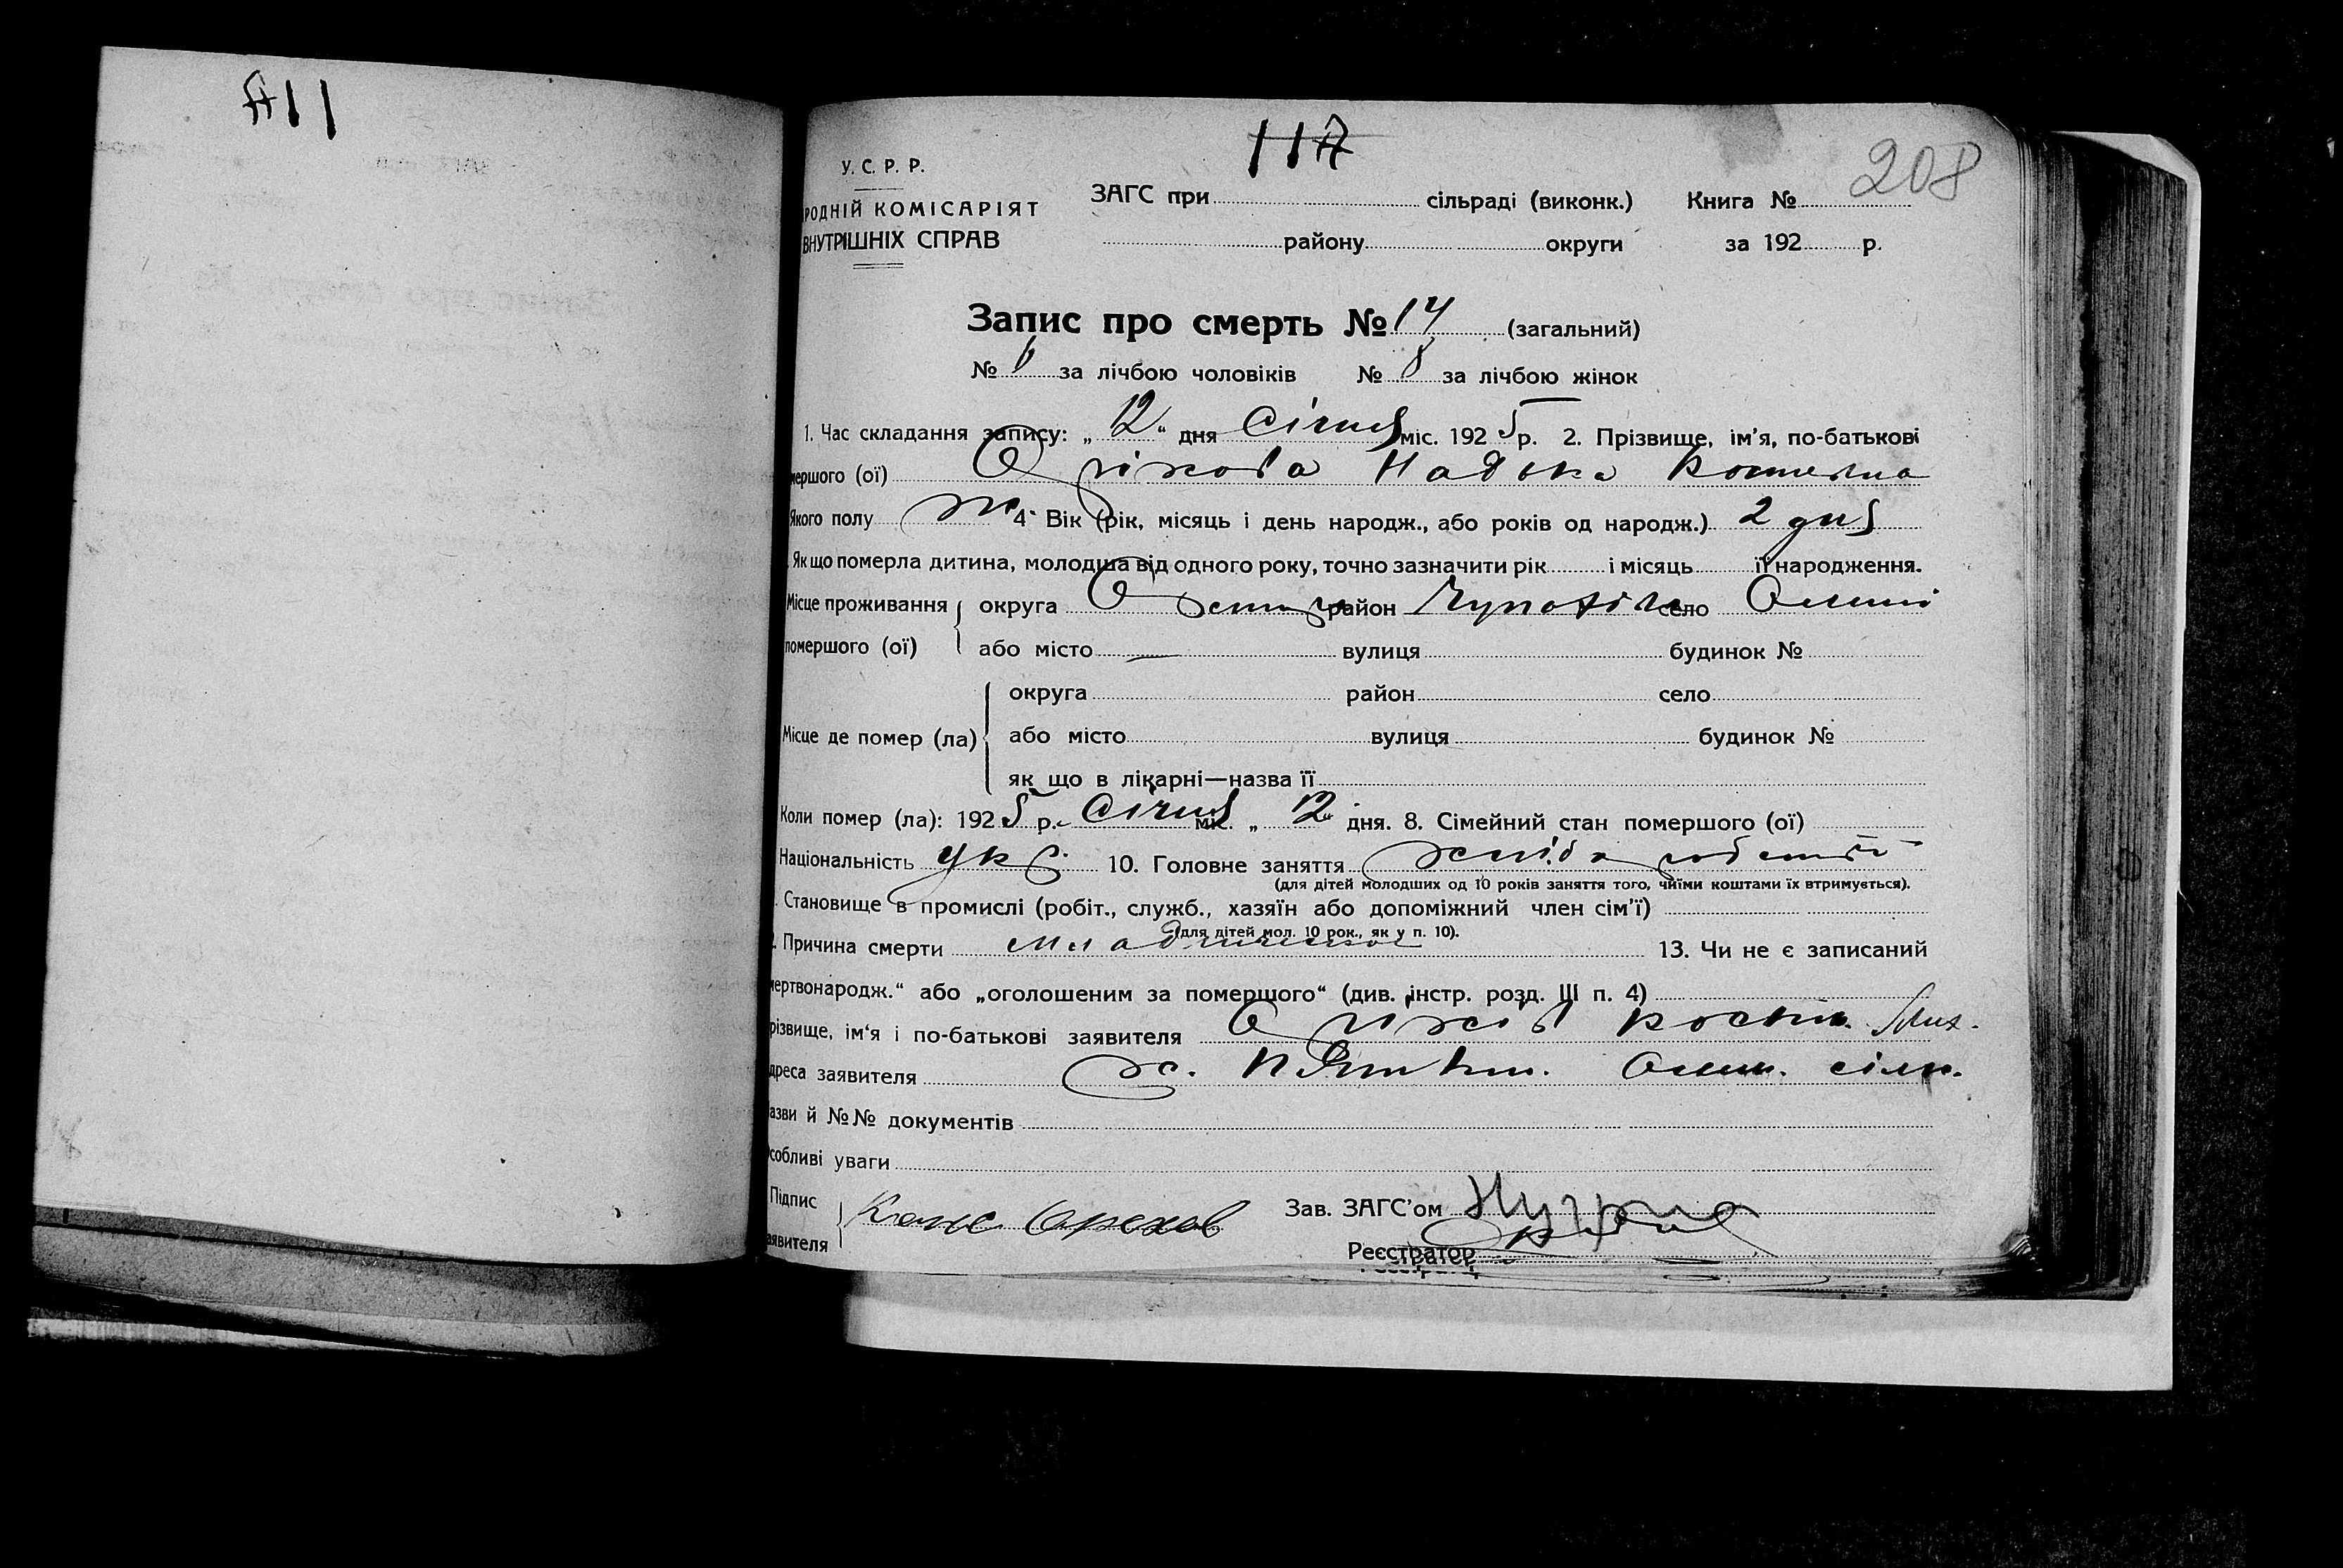 117
117
208
У. С. Р. Р.
РОДНІЙ КОМІСАРІЯТ
ВНУТРІШНІХ СПРАВ
ЗАГС при сільраді (виконк.) Книга №
району округи за 192 р.
Запис про смерть № 14 (загальний)
№ 6 за лічбою чоловіків № 8 за лічбою жінок
1. Час складання запису: „12“ дня Січня міс. 1925 р. 2. Прізвище, ім’я, по-батькові
мершого (ої) Оріхова Надька
Якого полу ж 4. Вік (рік, місяць і день народж., або років од народж.) 2 дня
Як що померла дитина, молодша від одного року, точно зазначити рік і місяць її народження.
Місце проживання округа район село
помершого (ої) або місто — вулиця будинок №
округа район село
Місце де помер (ла) або місто вулиця будинок №
як що в лікарні—назва її
Коли помер (ла): 1925 р. Січня міс. „12“ дня. 8. Сімейний стан помершого (ої)
Національність укр. 10. Головне заняття
(для дітей молодших од 10 років заняття того, чиїми коштами їх втримується).
Становище в промислі (робіт., служб., хазяїн або допоміжний член сім’ї)
(для дітей мол. 10 рок., як у п. 10).
Причина смерти 13. Чи не є записаний
мертвонародж.“ або „оголошеним за помершого“ (див. інстр. розд. III п. 4)
різвище, ім‘я і по-батькові заявителя Оріхів Пост. Мих.
дреса заявителя х. сілр.
азви й №№ документів
собливі уваги
Підпис
аявителя
Конс Орехов
Зав. ЗАГС’ом
Реєстратор